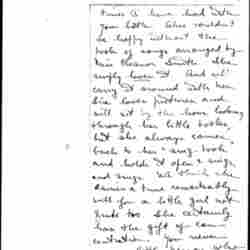 times I have had with
you both. She couldn't
be happy without the
book of songs arranged by
Miss Eleanor Smith. She
simply loves it. And will
carry it around with her.
She loves pictures and
will sit by the hour looking
through her little books,
but she always comes
back to her "sing book"
and holds it open & sings
and sings. I think she
carries a tune remarkably
well for a little girl not
quite two. She certainly
has the gift of con-
centration. You